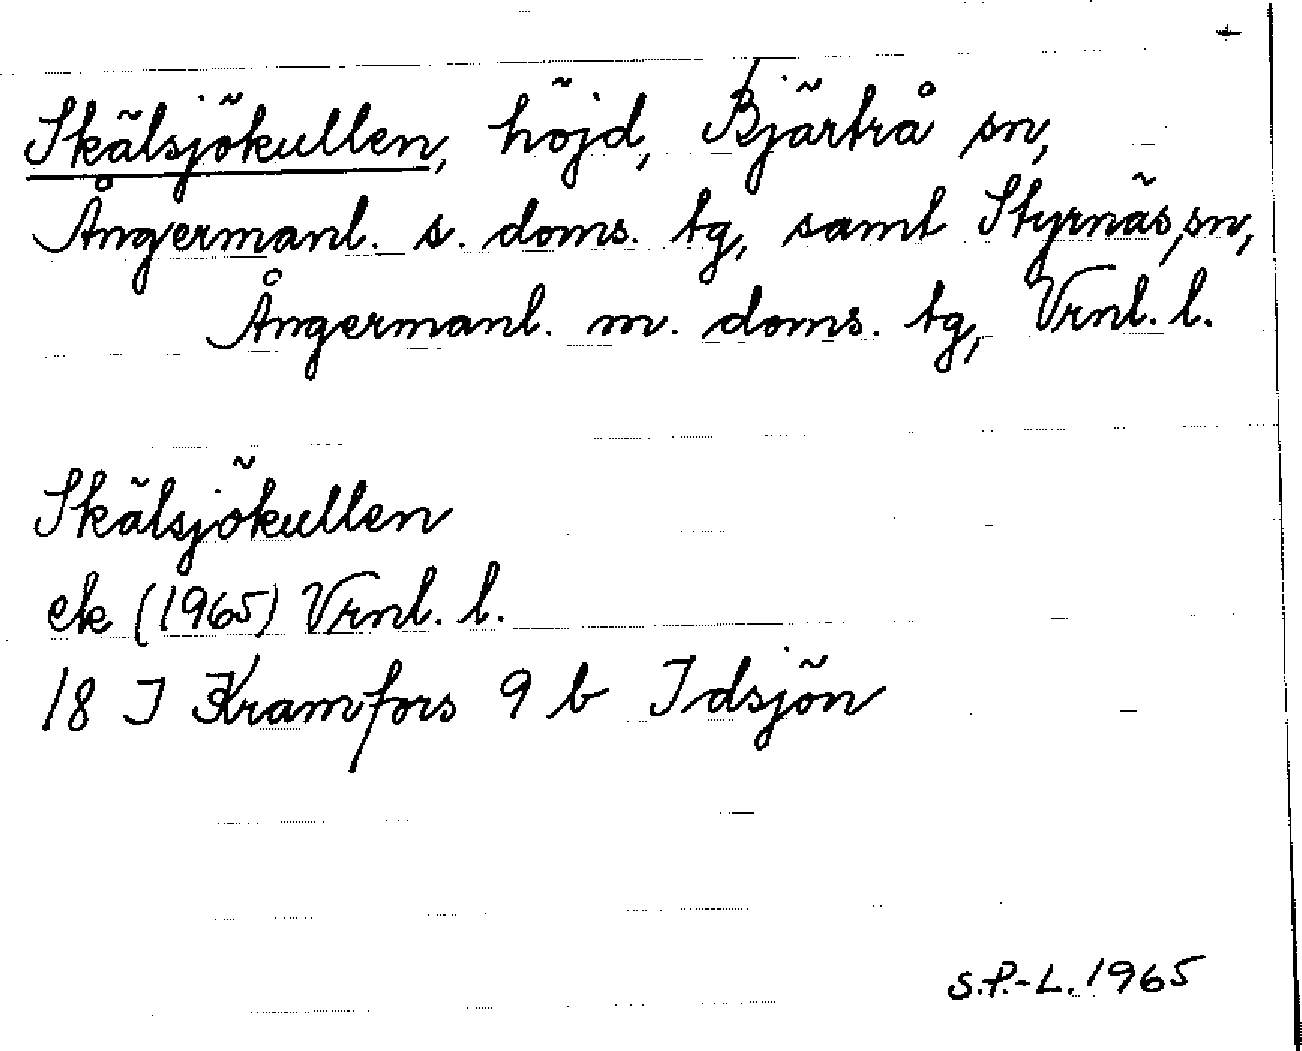 Skälsjökullen, höjd, Bjärtrå sn,
Ångermanl. s. doms. tg, samt Styrnäs sn,
Ångermanl. m. doms. tg, Vrnl. l.
Skälsjökullen
ek (1965) Vrnl. l.
18 I Kramfors 9 b Idsjön
S.P.-L. 1965